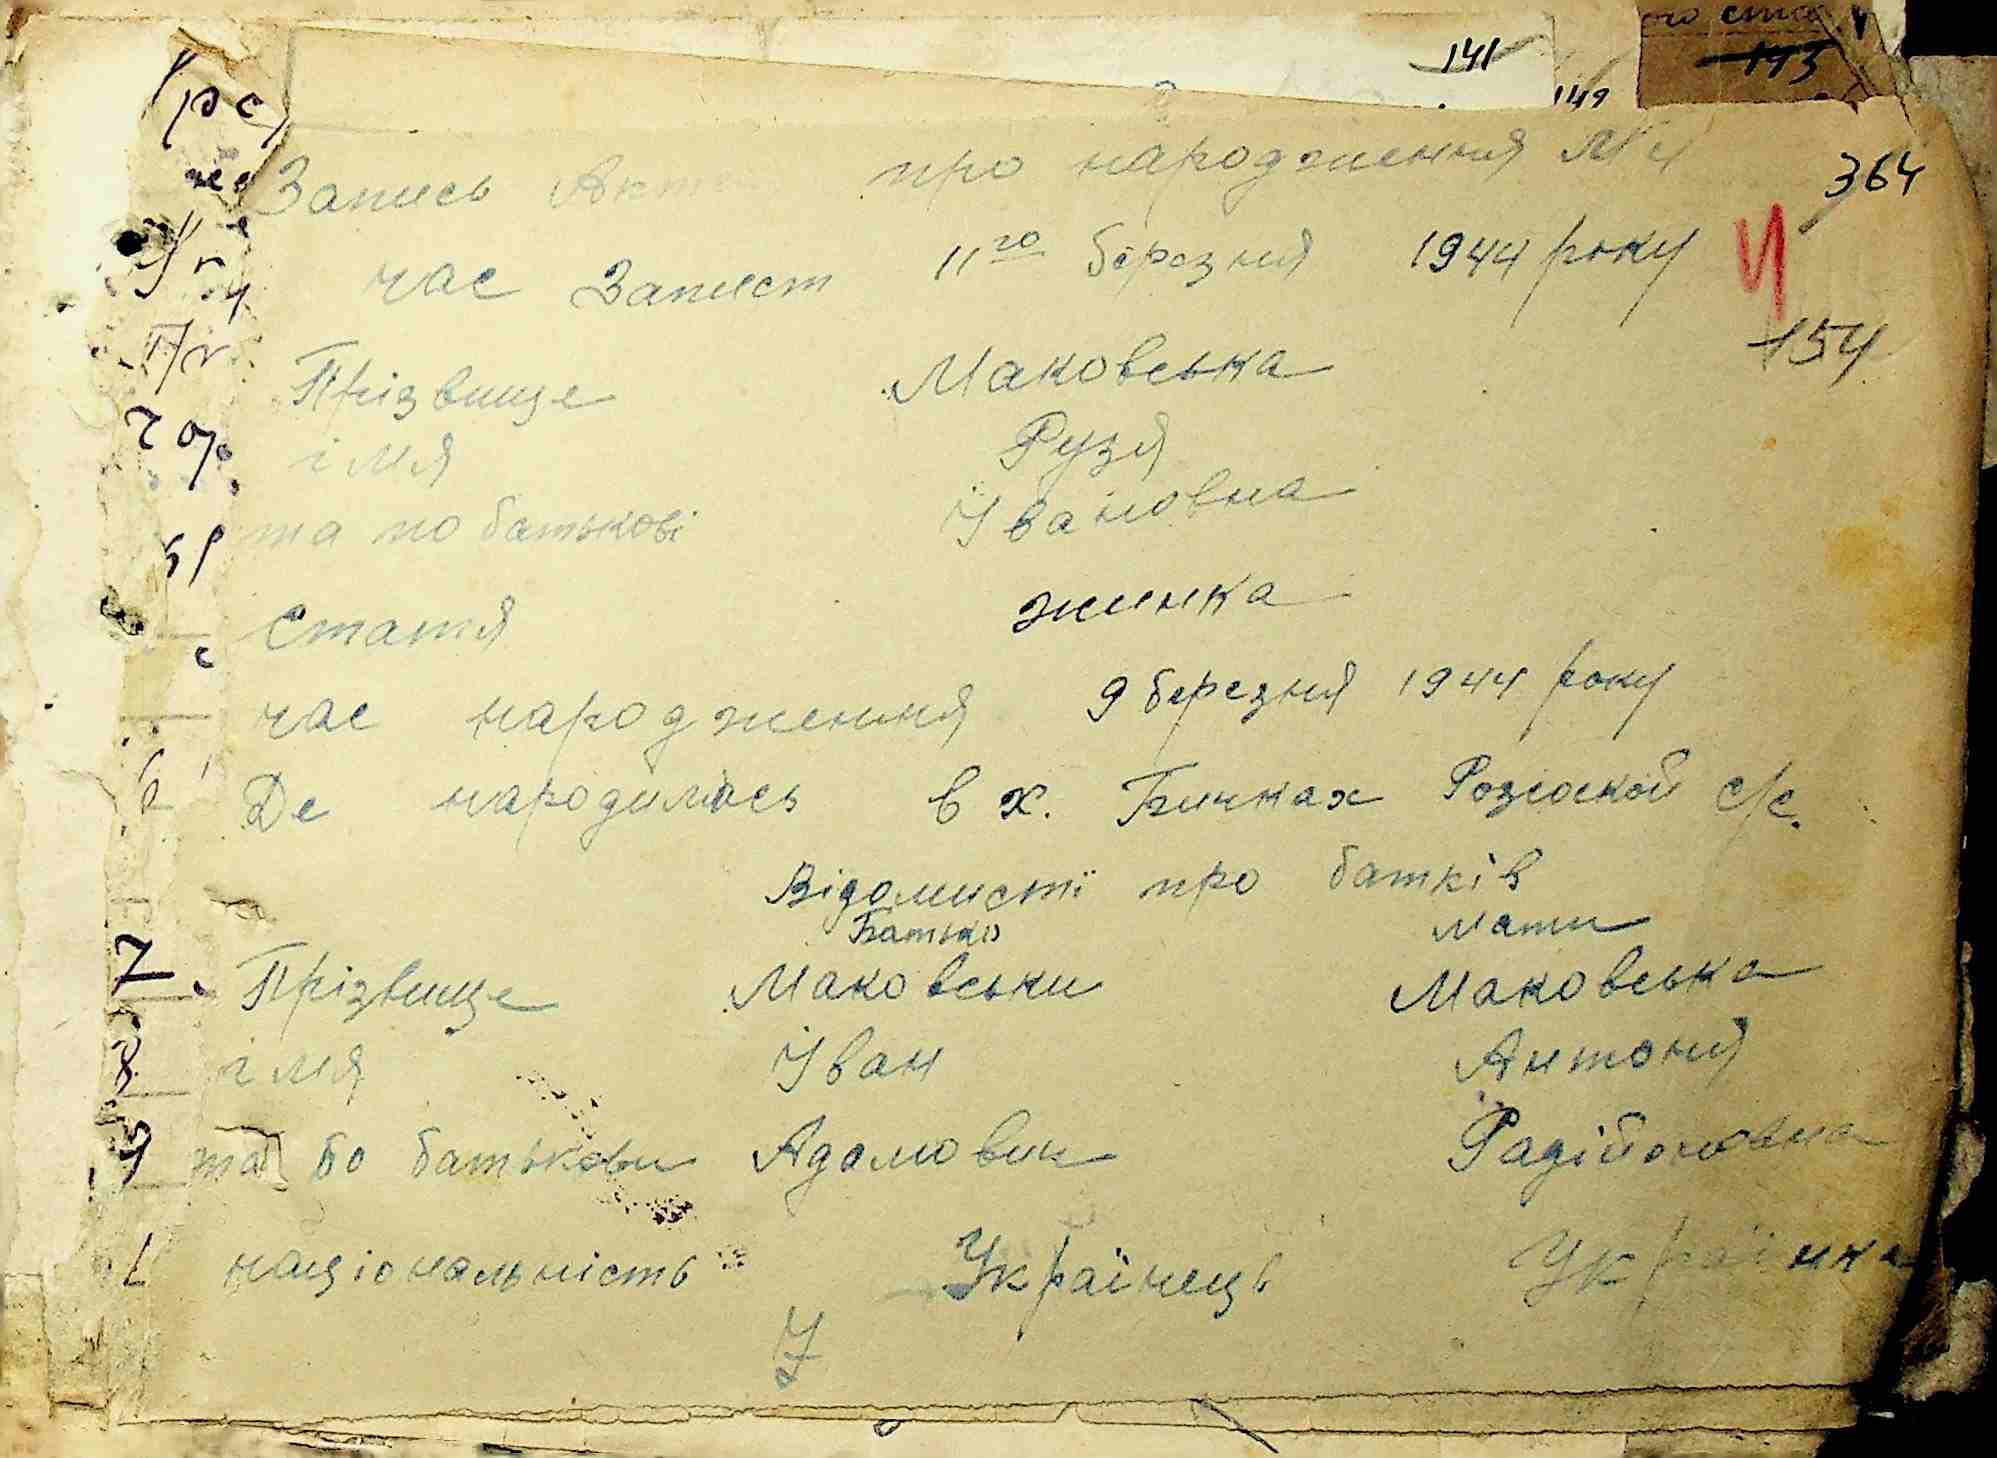 141
149
143
364
Запись Акт про народження № 4
час Запист 11го березня 1944 року
154
Прізвище Маковська
імя Рузя
та по батькові Івановна
Стаття жинка
час народження 9 березня 1944 року
Де народилась в х. Бичках с/с.
Відомисті про батків
Батько мати
7. Прізвище Маковськи Маковська
8 імя Іван Антоня
9 та бо батькови Адамович Радійоновна
національність Українець Українка